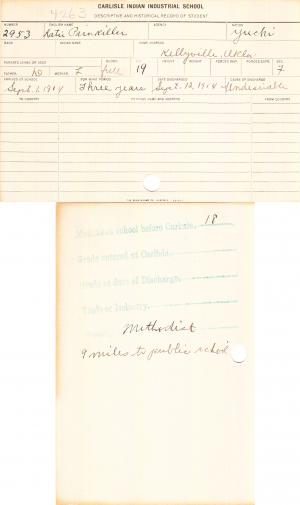 4263
CARLISLE INDIAN INDUSTRIAL SCHOOL
DESCRIPTIVE AND HISTORICAL RECORD OF STUDENT
NUMBER ENGLISH NAME AGENCY NATION
2953 Katie Painkiller Yuchi
BAND INDIAN NAME HOME ADDRESS
Kellyville, Okla.
PARENTS LIVING OR DEAD BLOOD AGE HEIGHT WEIGHT FORCED INSP. FORCED EXPR. SEX
FATHER D MOTHER L full 19 F
ARRIVED AT SCHOOL FOR WHAT PERIOD DATE DISCHARGED CAUSE OF DISCHARGE
Sept. 1, 1914 Three years Sept. 12, 1914 Undesirable
TO COUNTRY PATRONS NAME AND ADDRESS FROM COUNTRY
school before Carlisle. 18
Grade entered at Carlisle.
Grade at date of Discharge.
Trade or Industry.
Methodist
9 miles to public school